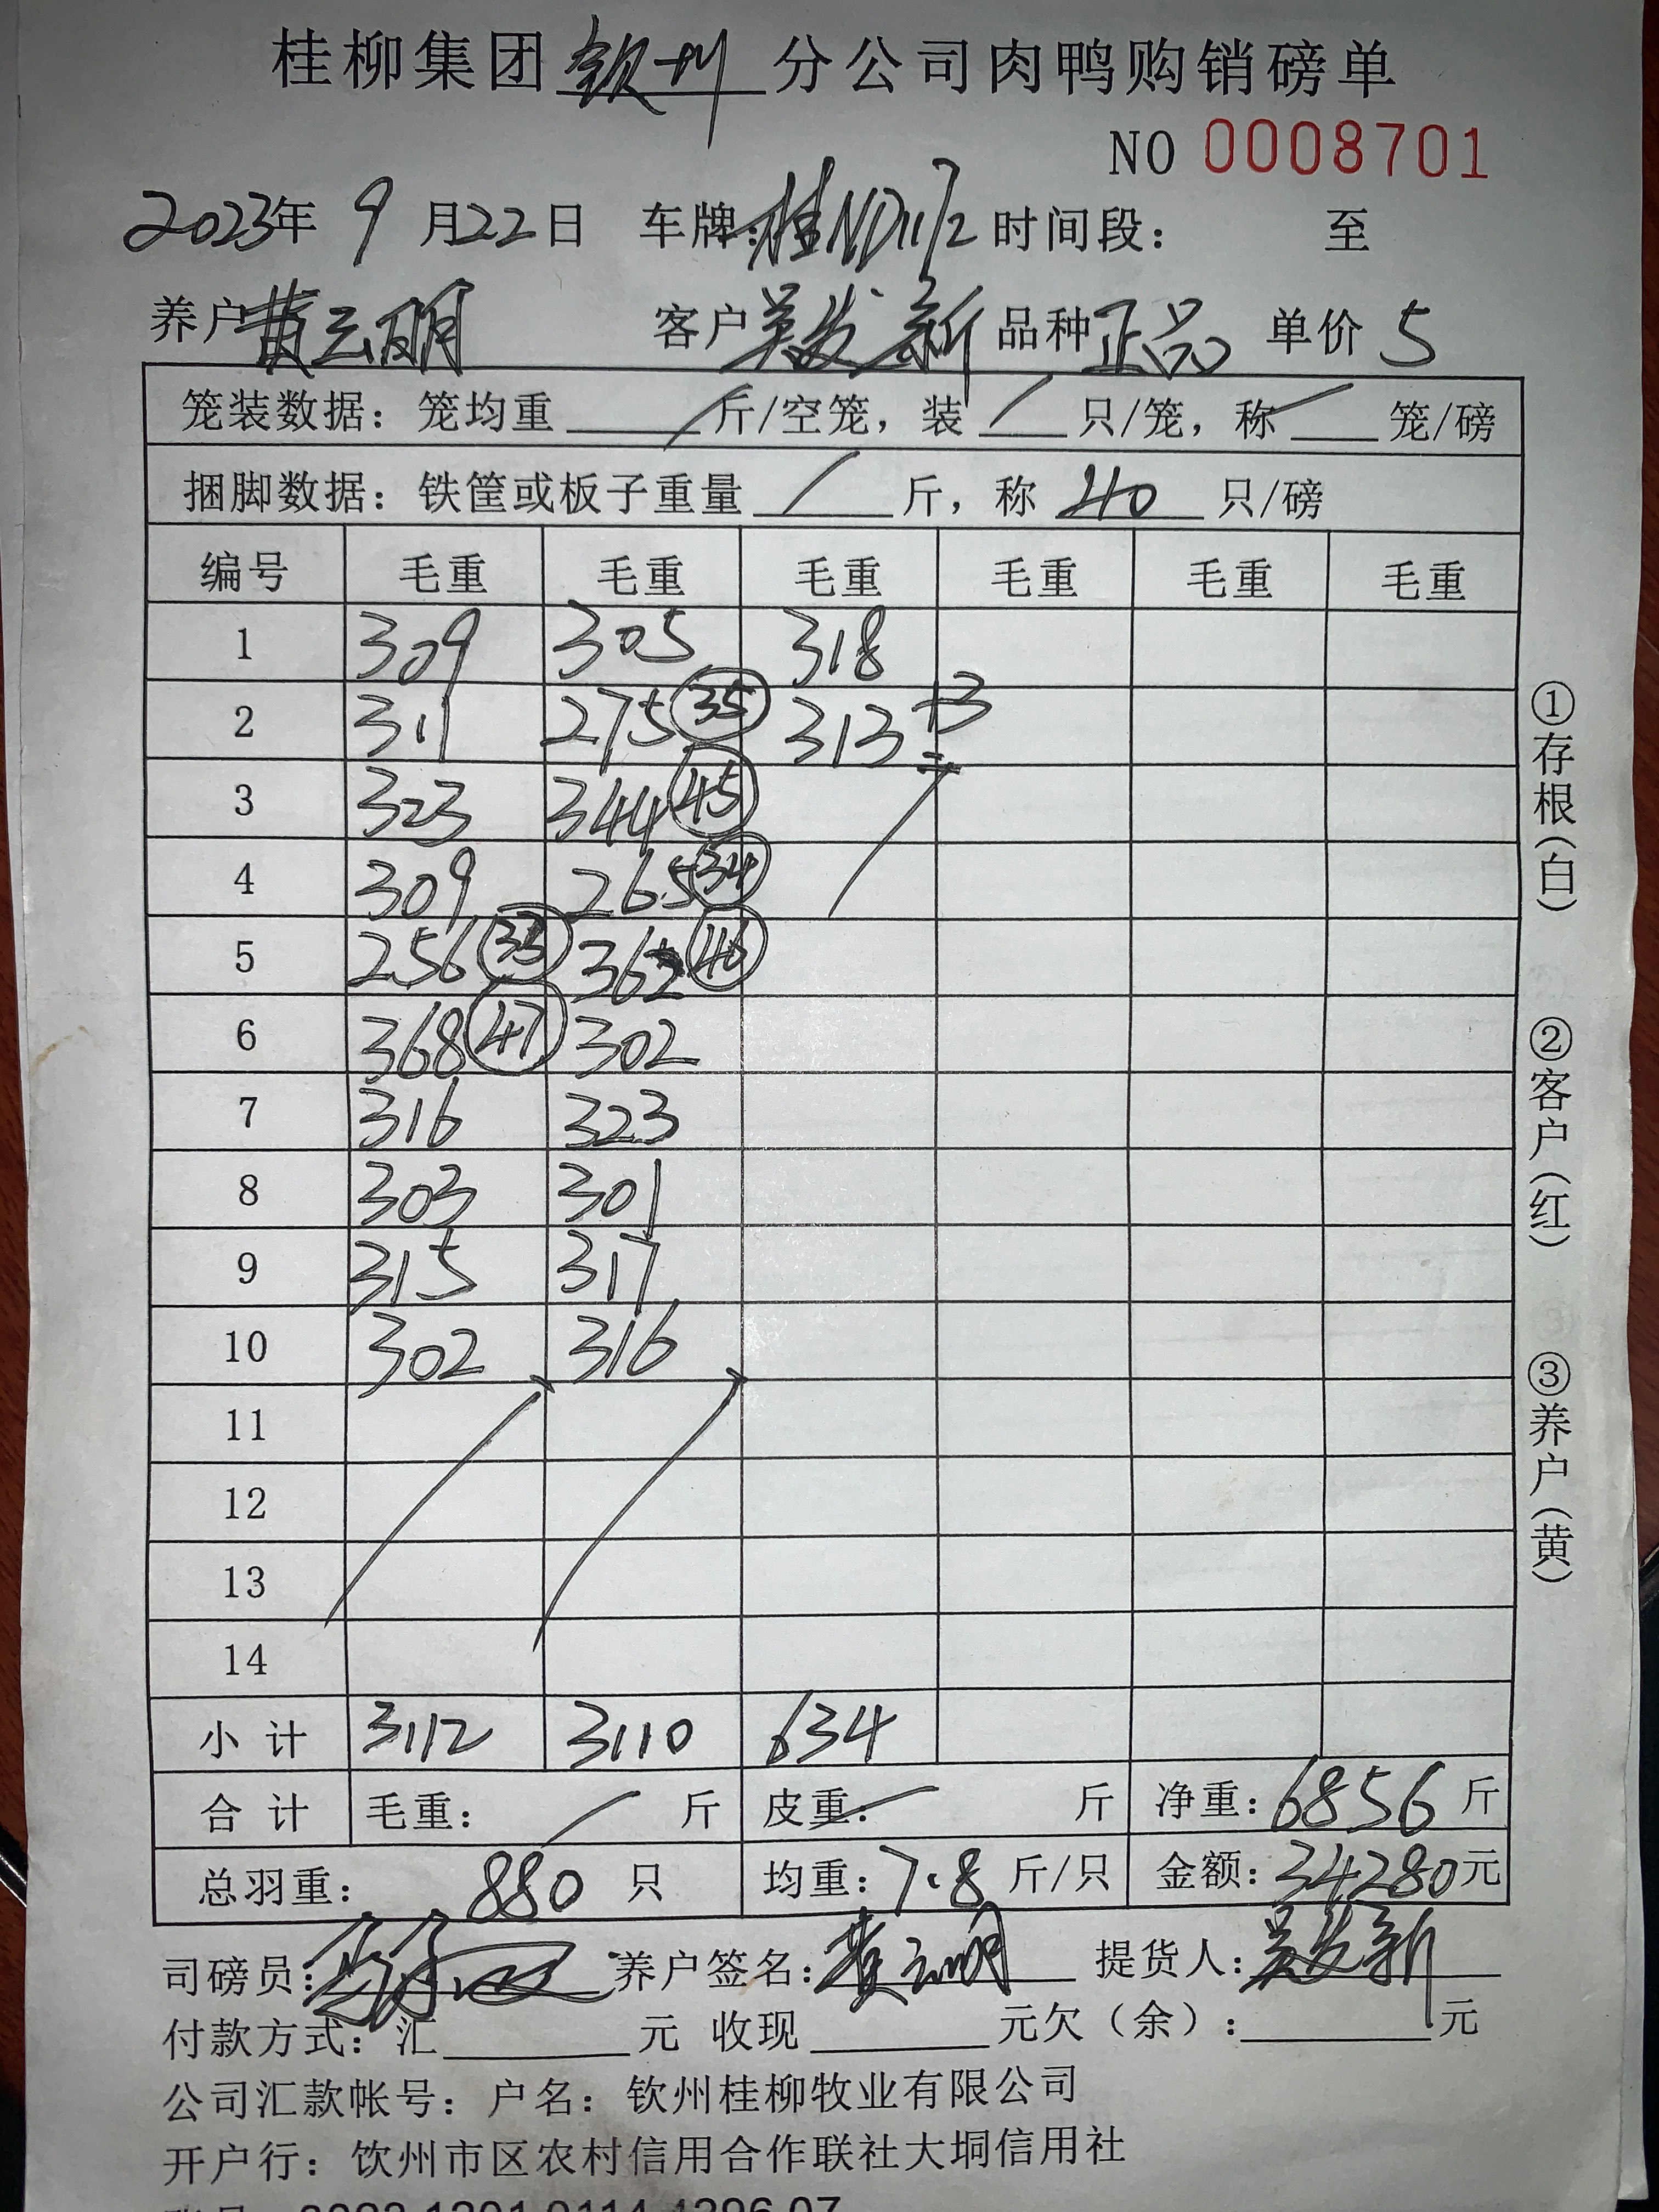 桂柳集团钦州分公司肉鸭购销磅单
NO 0008701
2023年 9 月22日 车牌:桂ND1172 时间段: 至
养户黄云明 客户吴发新 品种正品 单价 5
笼装数据: 笼均重 / 斤/空笼, 装 / 只/笼, 称 / 笼/磅
捆脚数据: 铁筐或板子重量 / 斤, 称 40 只/磅
编号 毛重 毛重 毛重 毛重 毛重 毛重
1 309 305 318
2 311 275 35 313 +3
3 323 344 45
4 309 265 34
5 256 33 362 46
6 368 47 302
7 316 323
8 303 301
9 315 317
10 302 316
11
12
13
14
小计 3112 3110 634
合计 毛重: / 斤 皮重: / 斤 净重: 6856 斤
总羽重: 880 只 均重: 7.8 斤/只 金额: 34280元
司磅员: 养户签名: 黄云明 提货人: 吴发新
付款方式: 汇 元 收现 元欠(余): 元
公司汇款帐号: 户名: 钦州桂柳牧业有限公司
开户行: 钦州市区农村信用合作联社大垌信用社
①存根(白)
②客户(红)
③养户(黄)